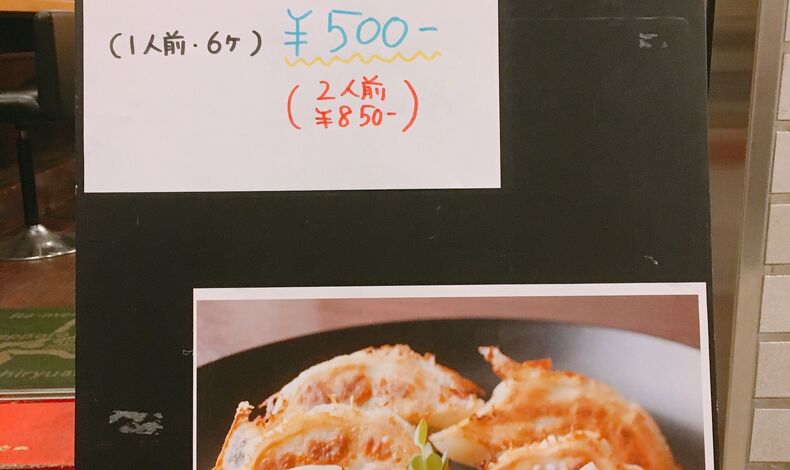 (1人前・6ケ) ¥500-
(2人前
¥850-)